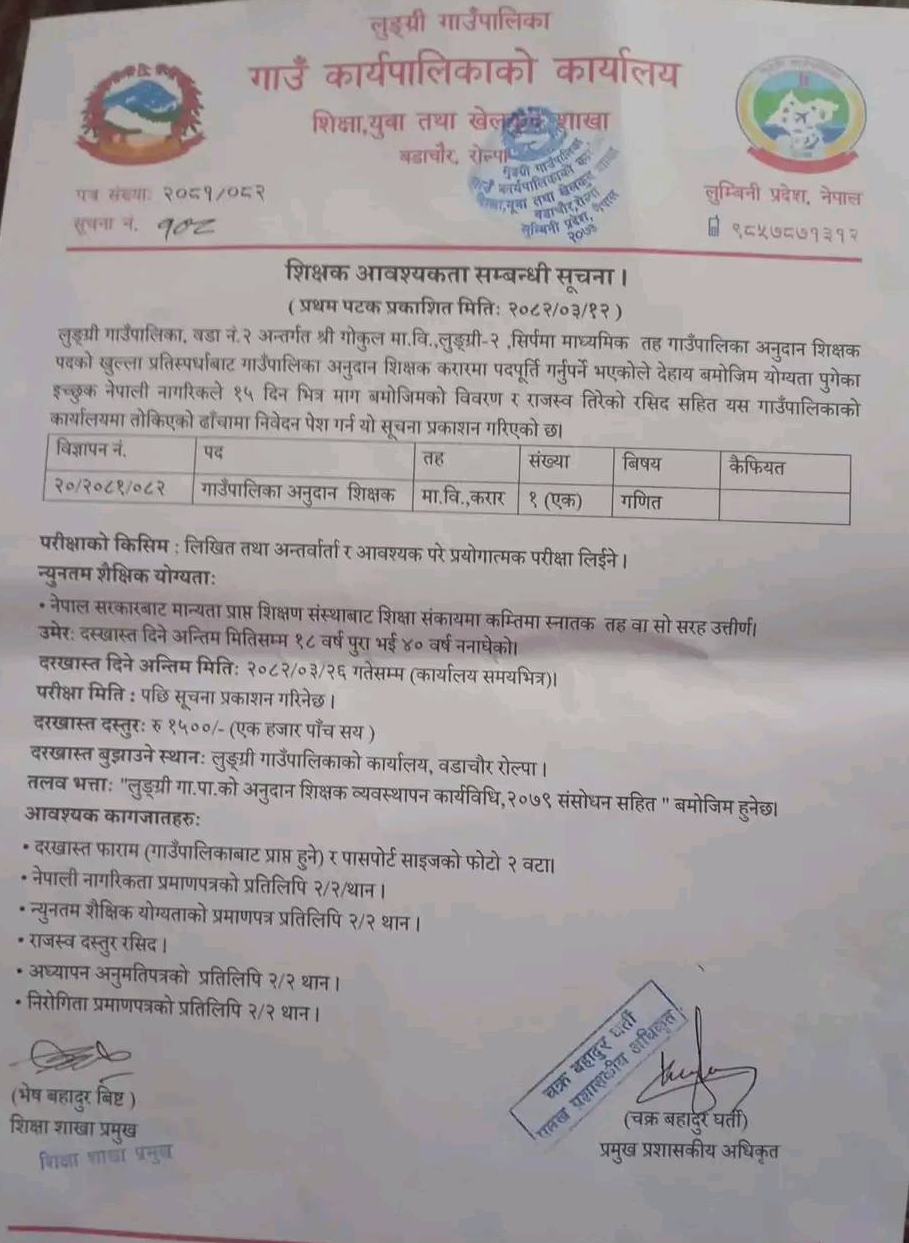 लुङग्री गाउँपालिका
गाउँ कार्यपालिकाको कार्यालय
शिक्षा,युबा तथा खेलकुद शाखा
बडाचौर, रोल्पा
लुङग्री गाउँपालिका
गाउँ कार्यपालिकाको
शिक्षा,यूवा तथा खेलकुद शाखा
बडाचौर,रोल्पा
लुम्बिनी प्रदेश, नेपाल
२०७३
पत्र संख्याः २०८१/०८२
लुम्बिनी प्रदेश, नेपाल
सूचना नं. १०८
९८५७८७१३१२
शिक्षक आवश्यकता सम्बन्धी सूचना ।
( प्रथम पटक प्रकाशित मितिः २०८२/०३/१२ )
लुङग्री गाउँपालिका, वडा नं.२ अन्तर्गत श्री गोकुल मा.वि.,लुङग्री-२ ,सिर्पमा माध्यमिक तह गाउँपालिका अनुदान शिक्षक
पदको खुल्ला प्रतिस्पर्धाबाट गाउँपालिका अनुदान शिक्षक करारमा पदपूर्ति गर्नुपर्ने भएकोले देहाय बमोजिम योग्यता पुगेका
इच्छुक नेपाली नागरिकले १५ दिन भित्र माग बमोजिमको विवरण र राजस्व तिरेको रसिद सहित यस गाउँपालिकाको
कार्यालयमा तोकिएको ढाँचामा निवेदन पेश गर्न यो सूचना प्रकाशन गरिएको छ।
विज्ञापन नं. पद तह संख्या बिषय कैफियत
२०/२०८१/०८२ गाउँपालिका अनुदान शिक्षक मा.वि.,करार १ (एक) गणित
परीक्षाको किसिम : लिखित तथा अन्तर्वार्ता र आवश्यक परे प्रयोगात्मक परीक्षा लिईने ।
न्युनतम शैक्षिक योग्यताः
• नेपाल सरकारबाट मान्यता प्राप्त शिक्षण संस्थाबाट शिक्षा संकायमा कम्तिमा स्नातक तह वा सो सरह उत्तीर्ण।
उमेरः दरखास्त दिने अन्तिम मितिसम्म १८ वर्ष पुरा भई ४० वर्ष ननाघेको।
दरखास्त दिने अन्तिम मितिः २०८२/०३/२६ गतेसम्म (कार्यालय समयभित्र)।
परीक्षा मिति : पछि सूचना प्रकाशन गरिनेछ ।
दरखास्त दस्तुरः रु १५००/- (एक हजार पाँच सय )
दरखास्त बुझाउने स्थानः लुङग्री गाउँपालिकाको कार्यालय, वडाचौर रोल्पा ।
तलव भत्ताः "लुङग्री गा.पा.को अनुदान शिक्षक व्यवस्थापन कार्यविधि,२०७९ संसोधन सहित " बमोजिम हुनेछ।
आवश्यक कागजातहरुः
• दरखास्त फाराम (गाउँपालिकाबाट प्राप्त हुने) र पासपोर्ट साइजको फोटो २ वटा।
• नेपाली नागरिकता प्रमाणपत्रको प्रतिलिपि २/२/थान ।
• न्युनतम शैक्षिक योग्यताको प्रमाणपत्र प्रतिलिपि २/२ थान ।
• राजस्व दस्तुर रसिद ।
• अध्यापन अनुमतिपत्रको प्रतिलिपि २/२ थान ।
• निरोगिता प्रमाणपत्रको प्रतिलिपि २/२ थान ।
(भेष बहादुर बिष्ट )
शिक्षा शाखा प्रमुख
शिक्षा शाखा प्रमुख
चक्र बहादुर घर्ती
प्रमुख प्रशासकीय अधिकृत
(चक्र बहादुर घर्ती)
प्रमुख प्रशासकीय अधिकृत